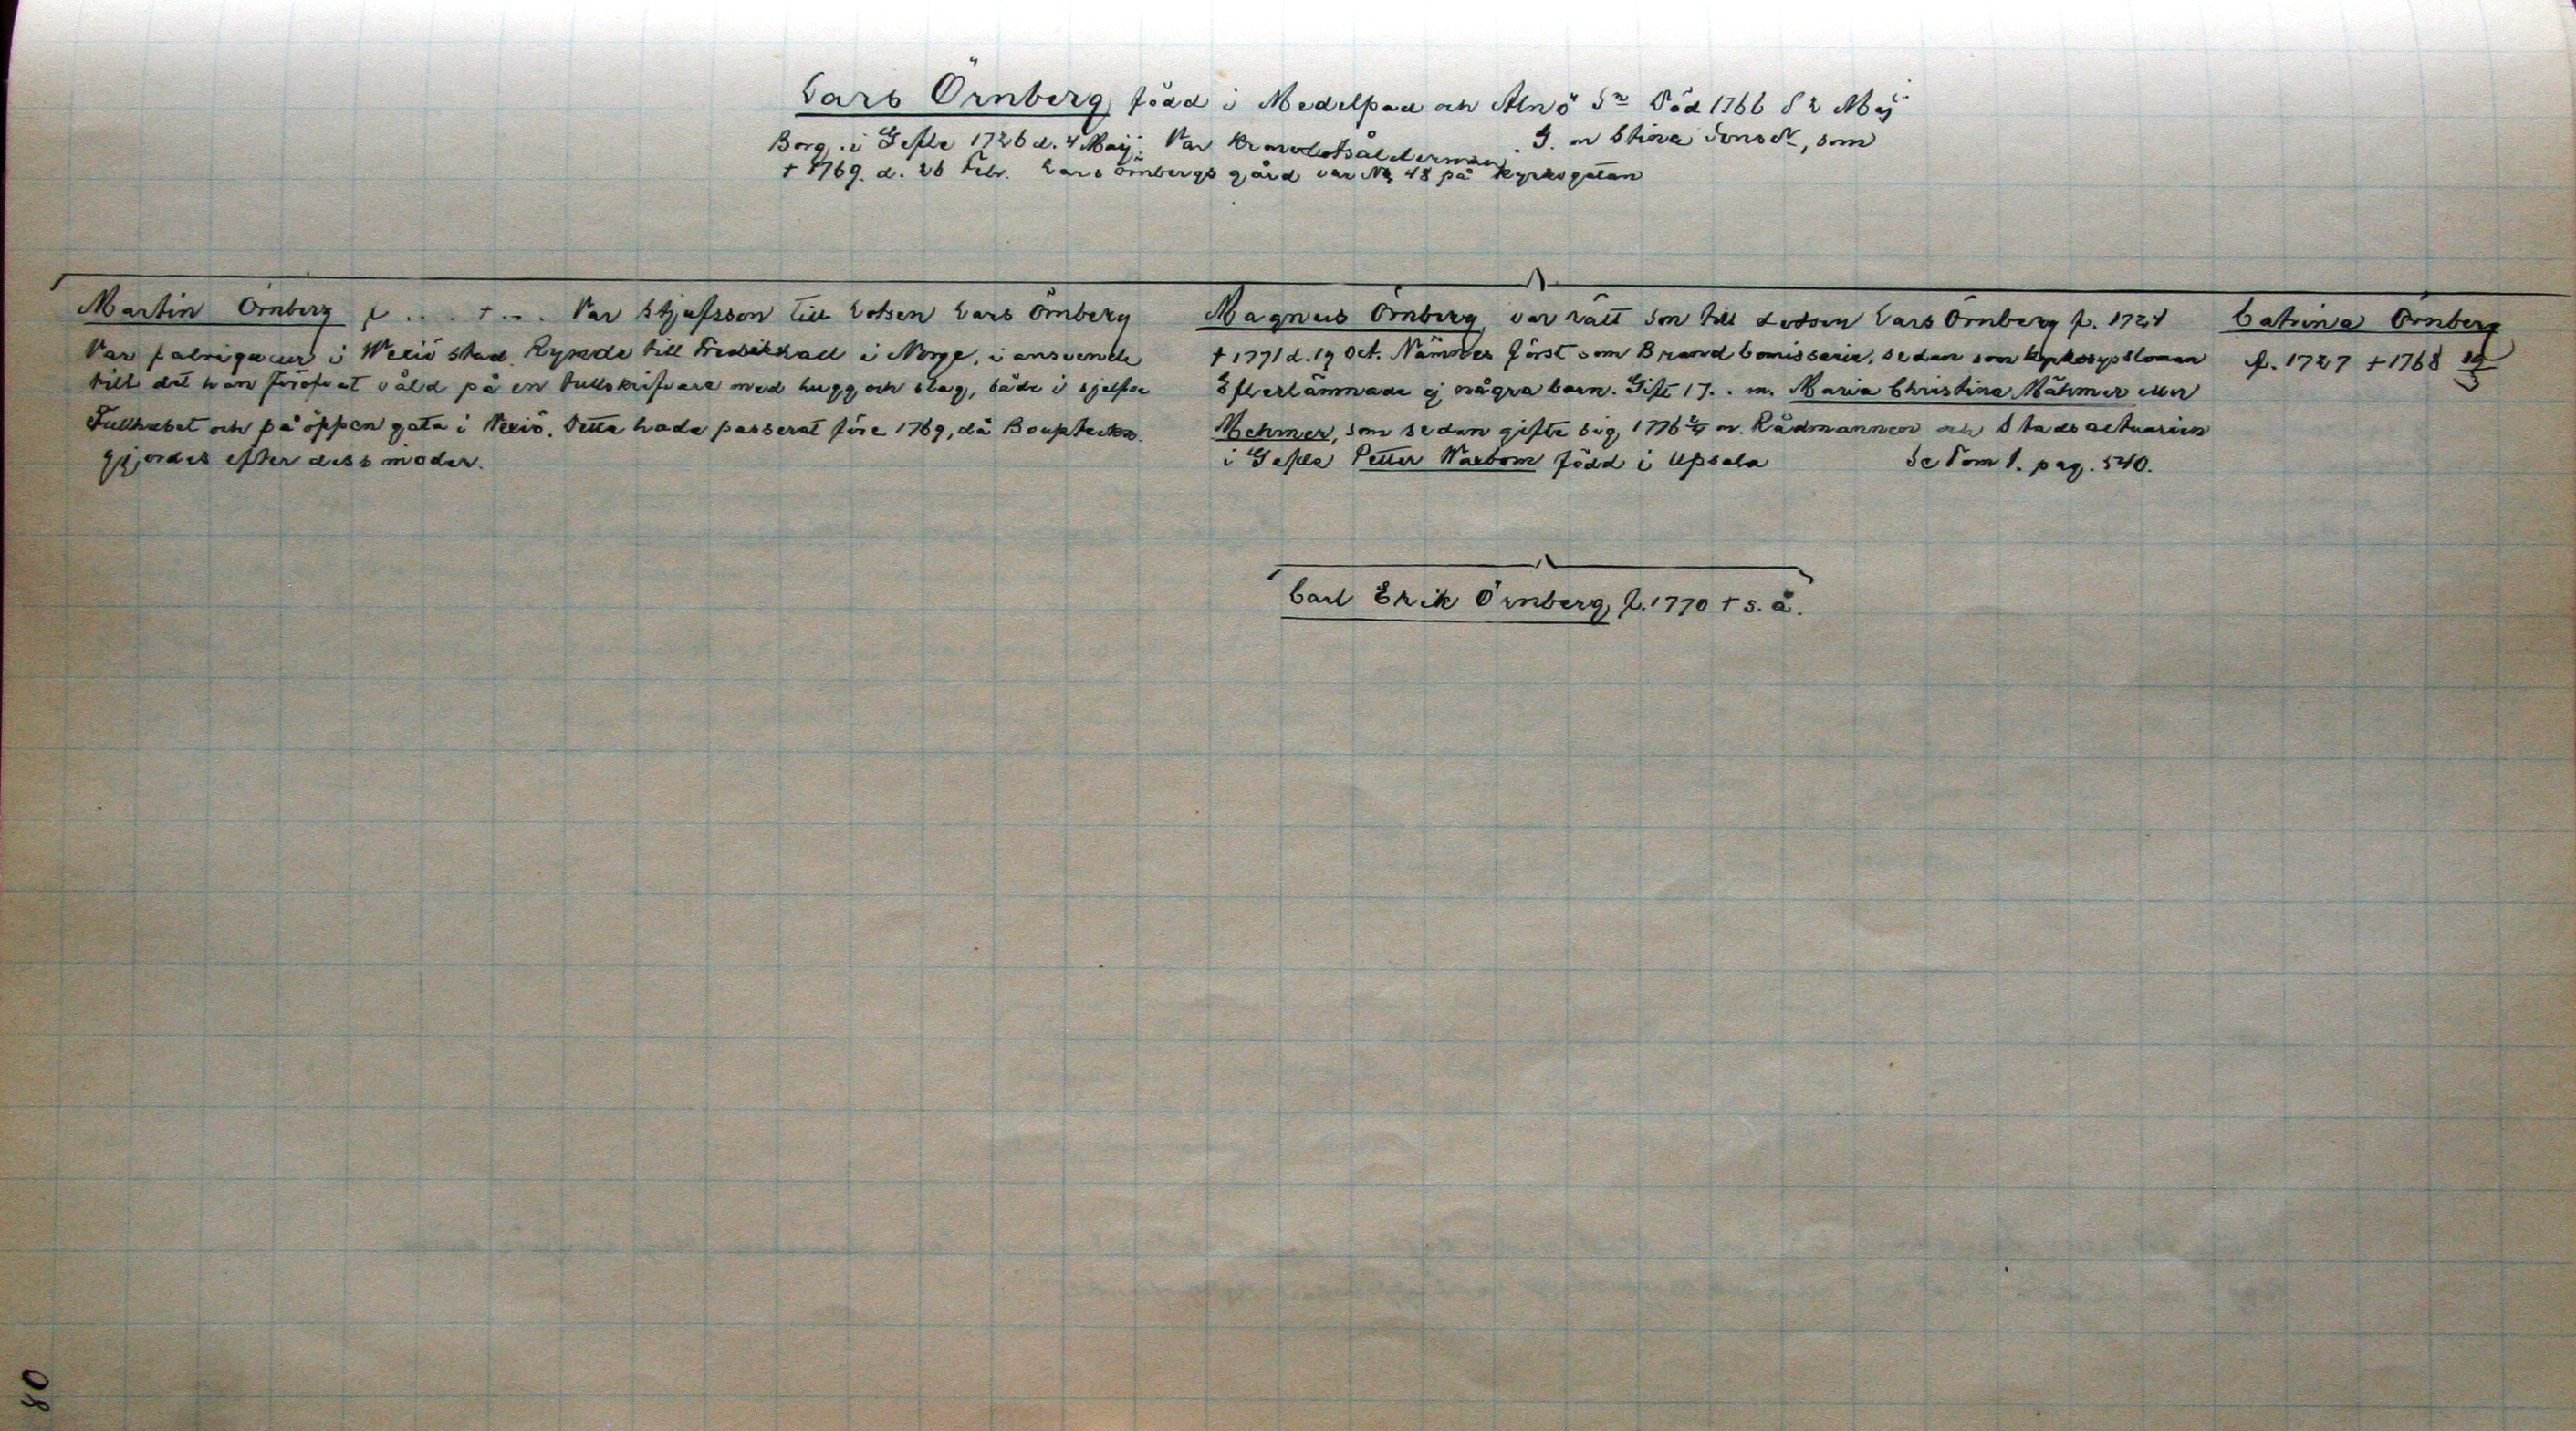 Lars Örnberg, född i Medelpad och Alnö Sn Död 1766 d 2 Maj
Borg. i Gefle 1726 d. 4 Maij. Var Kronolotsålderman. G. m Stina Jonsdr, som
† 1769. d. 26 Febr. Lars Örnbergs gård var No 48 på Kyrkogatan
Martin Örnberg f . . . † . . . Var Stjufsson till Lotsen Lars Örnberg
Var fabriqueur i Wexiö stad. Rymde till Fredrikhall i Norge, i anseende
till det han föröfvat våld på en tullskrifvare med hugg och slag, både i sjelfva
Tullhuset och på öppen gata i Wexiö. Detta hade passerat före 1769, då Boupteckn.
gjordes efter dess moder.
Magnus Örnberg, var rätt son till Lotsen Lars Örnberg f. 1724
† 1771 d. 19 Oct. Nämnes först som Brand Comissarie, sedan som Kyrkosysloman
Efterlämnade ej några barn. Gift 17. . m. Maria Christina Mähmer eller
Mehmer, som sedan gifte sig 1776 m. Rådmannen och Stadsactuarien
i Gefle Petter Warbom född i Upsala Se Tom 1. pag. 540.
Catrina Örnberg
f. 1727 † 1768 19/3
Carl Erik Örnberg, f. 1770 † s. å.
80